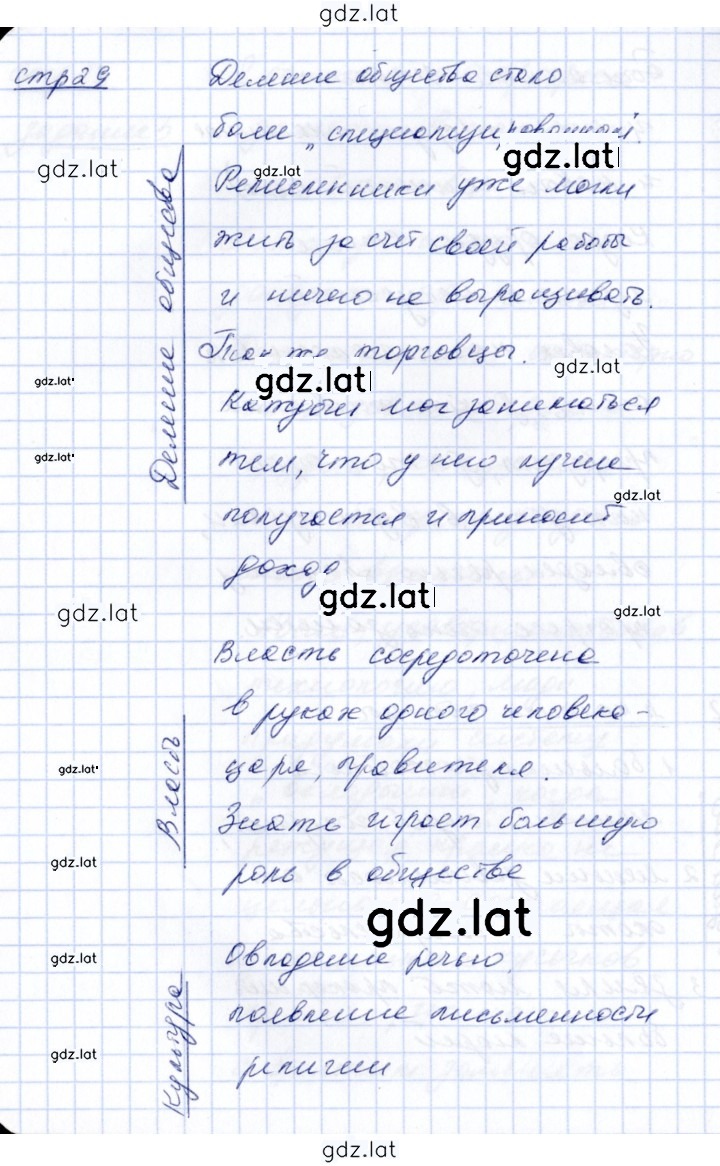 gdz.lat
стр 29
Деление общества стало
более „специализированной.
gdz.lat
gdz.lat
gdz.lat
Деление общества
Ремесленники уже могли
жить за счет своей работы
и ничего не выращивать.
Так же торговцы.
gdz.lat
gdz.lat
gdz.lat
Каждый мог заниматься
gdz.lat
тем, что у него лучше
gdz.lat
получается и приносит
доход
gdz.lat
gdz.lat
gdz.lat
Власть
Власть сосредоточена
в руках одного человека –
царя, правителя.
gdz.lat
Знать играет большую
gdz.lat
роль в обществе
gdz.lat
Культура
Овладение речью,
gdz.lat
появление письменности
gdz.lat
религии
gdz.lat